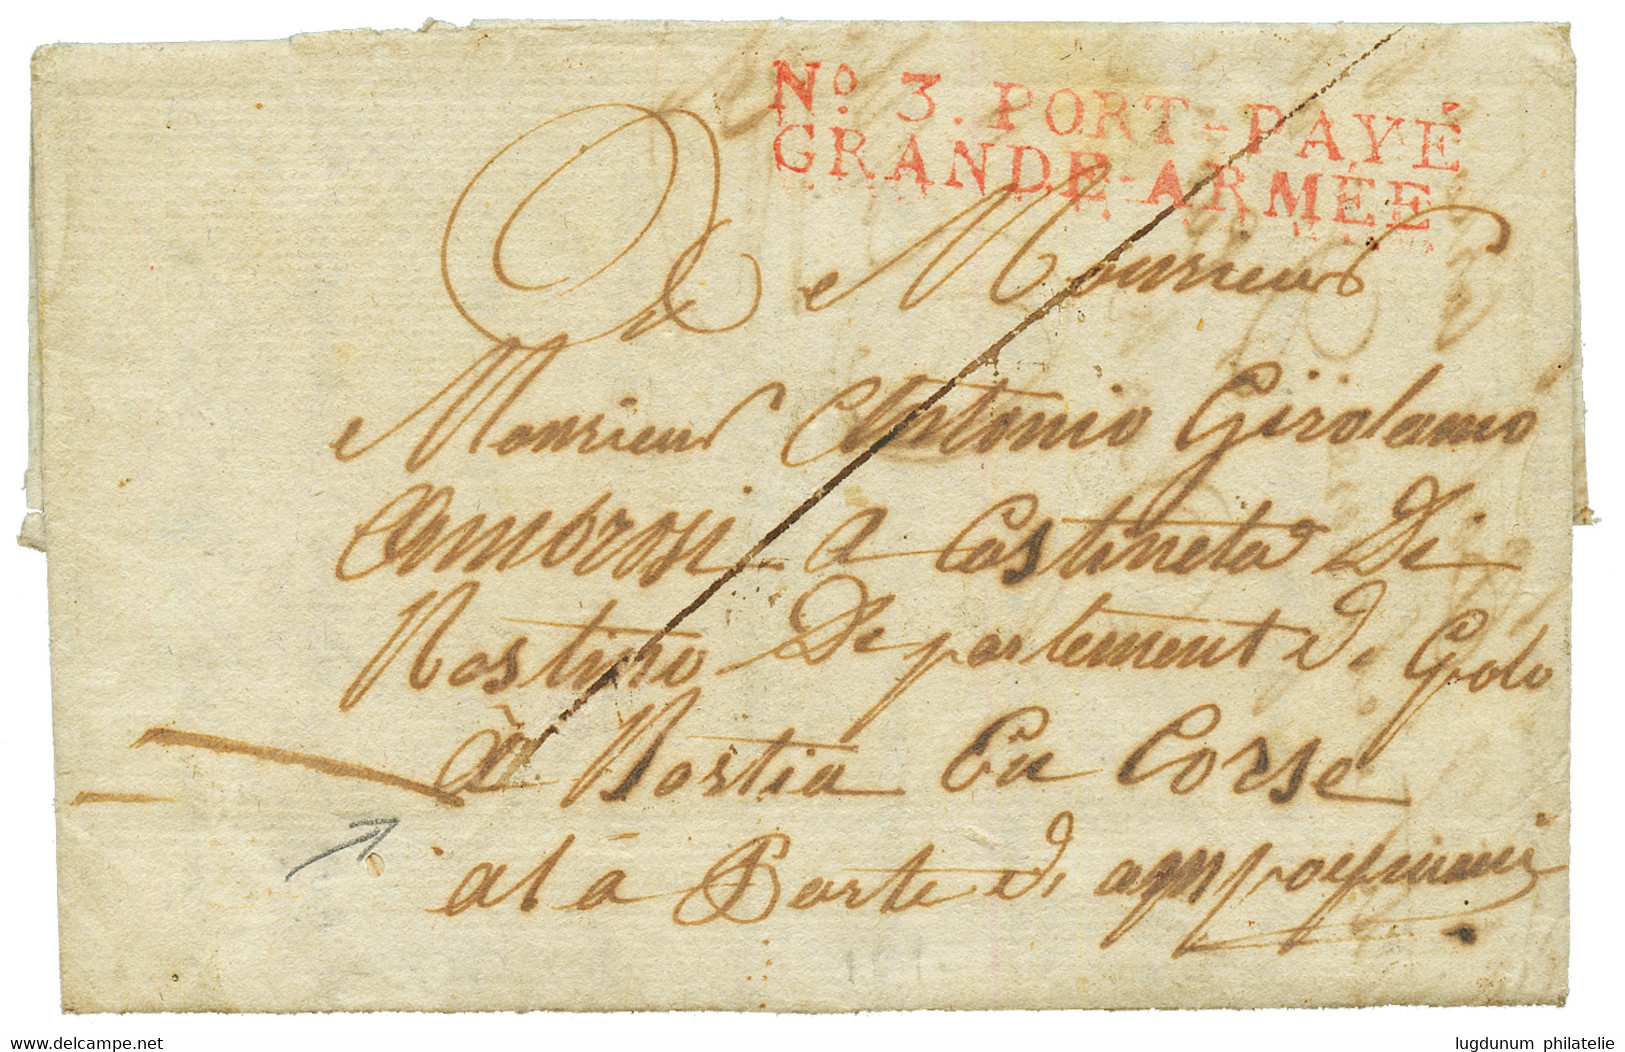 Nº. 3. PORT-PAYÉ
GRANDE-ARMÉE
A Monsieur
Monsieur Antonio Girolamo
Ambrosi a Castineta Di
Rostino Departement d. Golo
à Bastia En Corse
Poste
www.delcampe.net
lugdunum philatelie